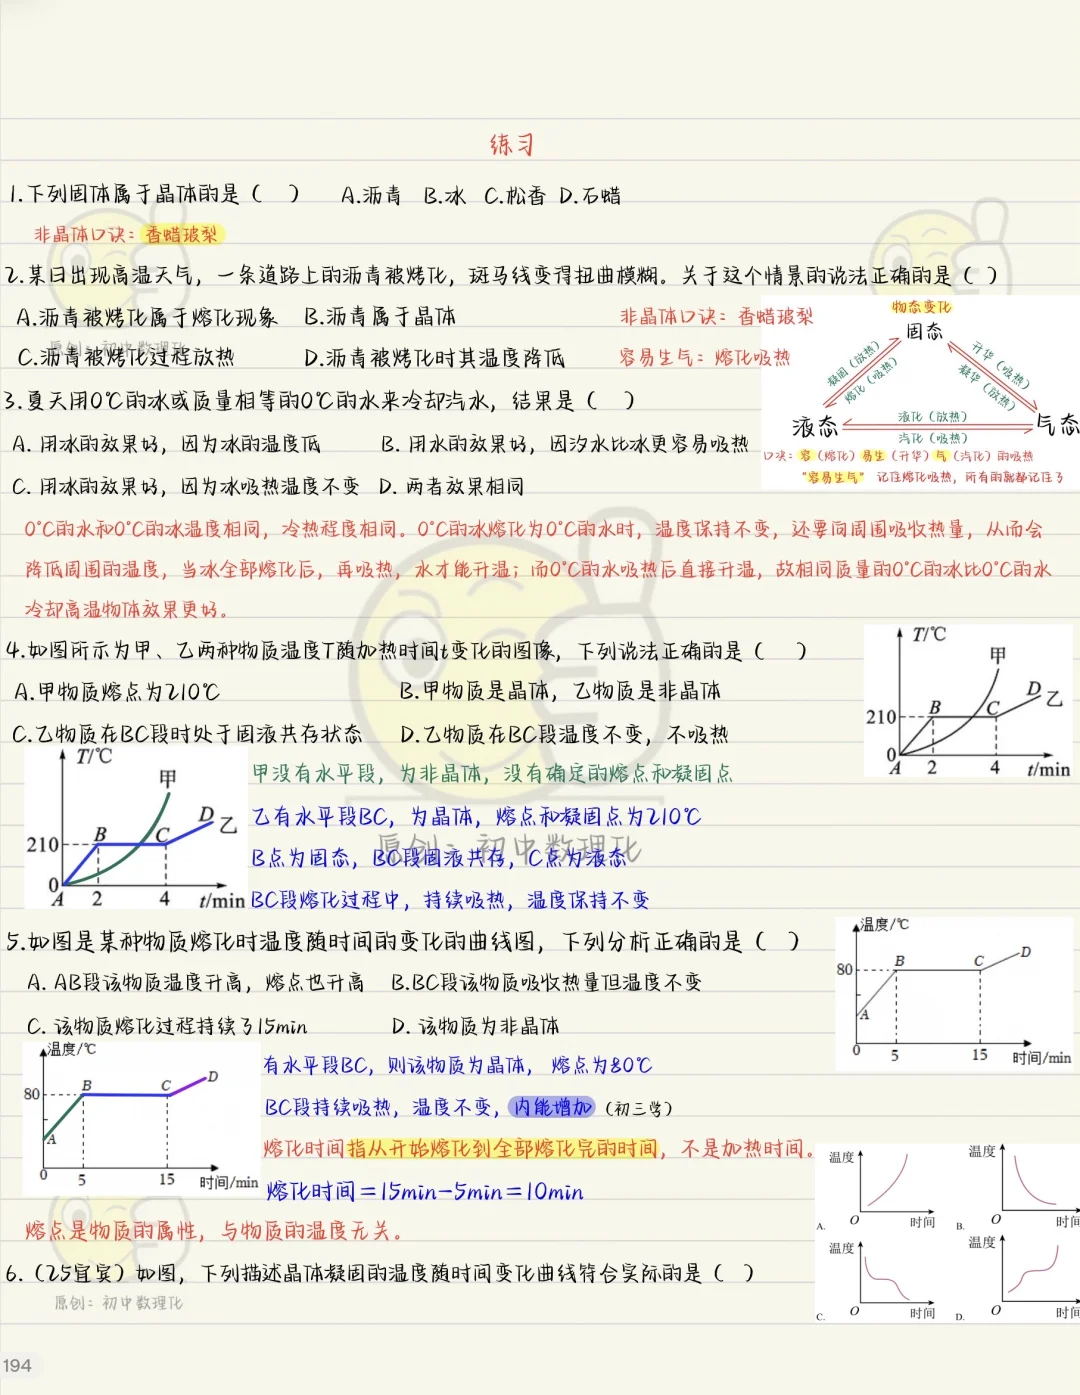 练习
1.下列固体属于晶体的是（ ） A.沥青 B.冰 C.松香 D.石蜡
非晶体口诀：香蜡玻梨
2.某日出现高温天气，一条道路上的沥青被烤化，斑马线变得扭曲模糊。关于这个情景的说法正确的是（ ）
A.沥青被烤化属于熔化现象 B.沥青属于晶体
非晶体口诀：香蜡玻梨
C.沥青被烤化过程放热 D.沥青被烤化时其温度降低
容易生气：熔化吸热
原创：初中数理化
物态变化
固态
凝固（放热）
熔化（吸热）
升华（吸热）
凝华（放热）
液态
液化（放热）
汽化（吸热）
气态
口诀：容（熔化）易生（升华）气（汽化）的吸热
“容易生气” 记住熔化吸热，所有的就都记住了
3.夏天用0℃的冰或质量相等的0℃的水来冷却汽水，结果是（ ）
A. 用冰的效果好，因为冰的温度低 B. 用水的效果好，因汐水比冰更容易吸热
C. 用冰的效果好，因为冰吸热温度不变 D. 两者效果相同
0℃的水和0℃的冰温度相同，冷热程度相同。0℃的冰熔化为0℃的水时，温度保持不变，还要向周围吸收热量，从而会
降低周围的温度，当冰全部熔化后，再吸热，水才能升温；而0℃的水吸热后直接升温，故相同质量的0℃的冰比0℃的水
冷却高温物体效果更好。
4.如图所示为甲、乙两种物质温度T随加热时间t变化的图像，下列说法正确的是（ ）
A.甲物质熔点为210℃ B.甲物质是晶体，乙物质是非晶体
C.乙物质在BC段时处于固液共存状态 D.乙物质在BC段温度不变，不吸热
T/℃
甲
D 乙
B C
210
0
A 2 4 t/min
T/℃
甲
D 乙
B C
210
0
A 2 4 t/min
甲没有水平段，为非晶体，没有确定的熔点和凝固点
乙有水平段BC，为晶体，熔点和凝固点为210℃
原创：初中数理化
B点为固态，BC段固液共存，C点为液态
BC段熔化过程中，持续吸热，温度保持不变
5.如图是某种物质熔化时温度随时间的变化的曲线图，下列分析正确的是（ ）
A. AB段该物质温度升高，熔点也升高 B.BC段该物质吸收热量但温度不变
C. 该物质熔化过程持续了15min D. 该物质为非晶体
温度/℃
80
B C D
A
0 5 15 时间/min
温度/℃
80
B C D
A
0 5 15 时间/min
有水平段BC，则该物质为晶体， 熔点为80℃
BC段持续吸热，温度不变，内能增加（初三学）
熔化时间指从开始熔化到全部熔化完的时间，不是加热时间。
熔化时间＝15min-5min＝10min
熔点是物质的属性，与物质的温度无关。
6.（25宜宾）如图，下列描述晶体凝固的温度随时间变化曲线符合实际的是（ ）
原创：初中数理化
温度 温度
A. O 时间 B. O 时间
温度 温度
C. O 时间 D. O 时间
194